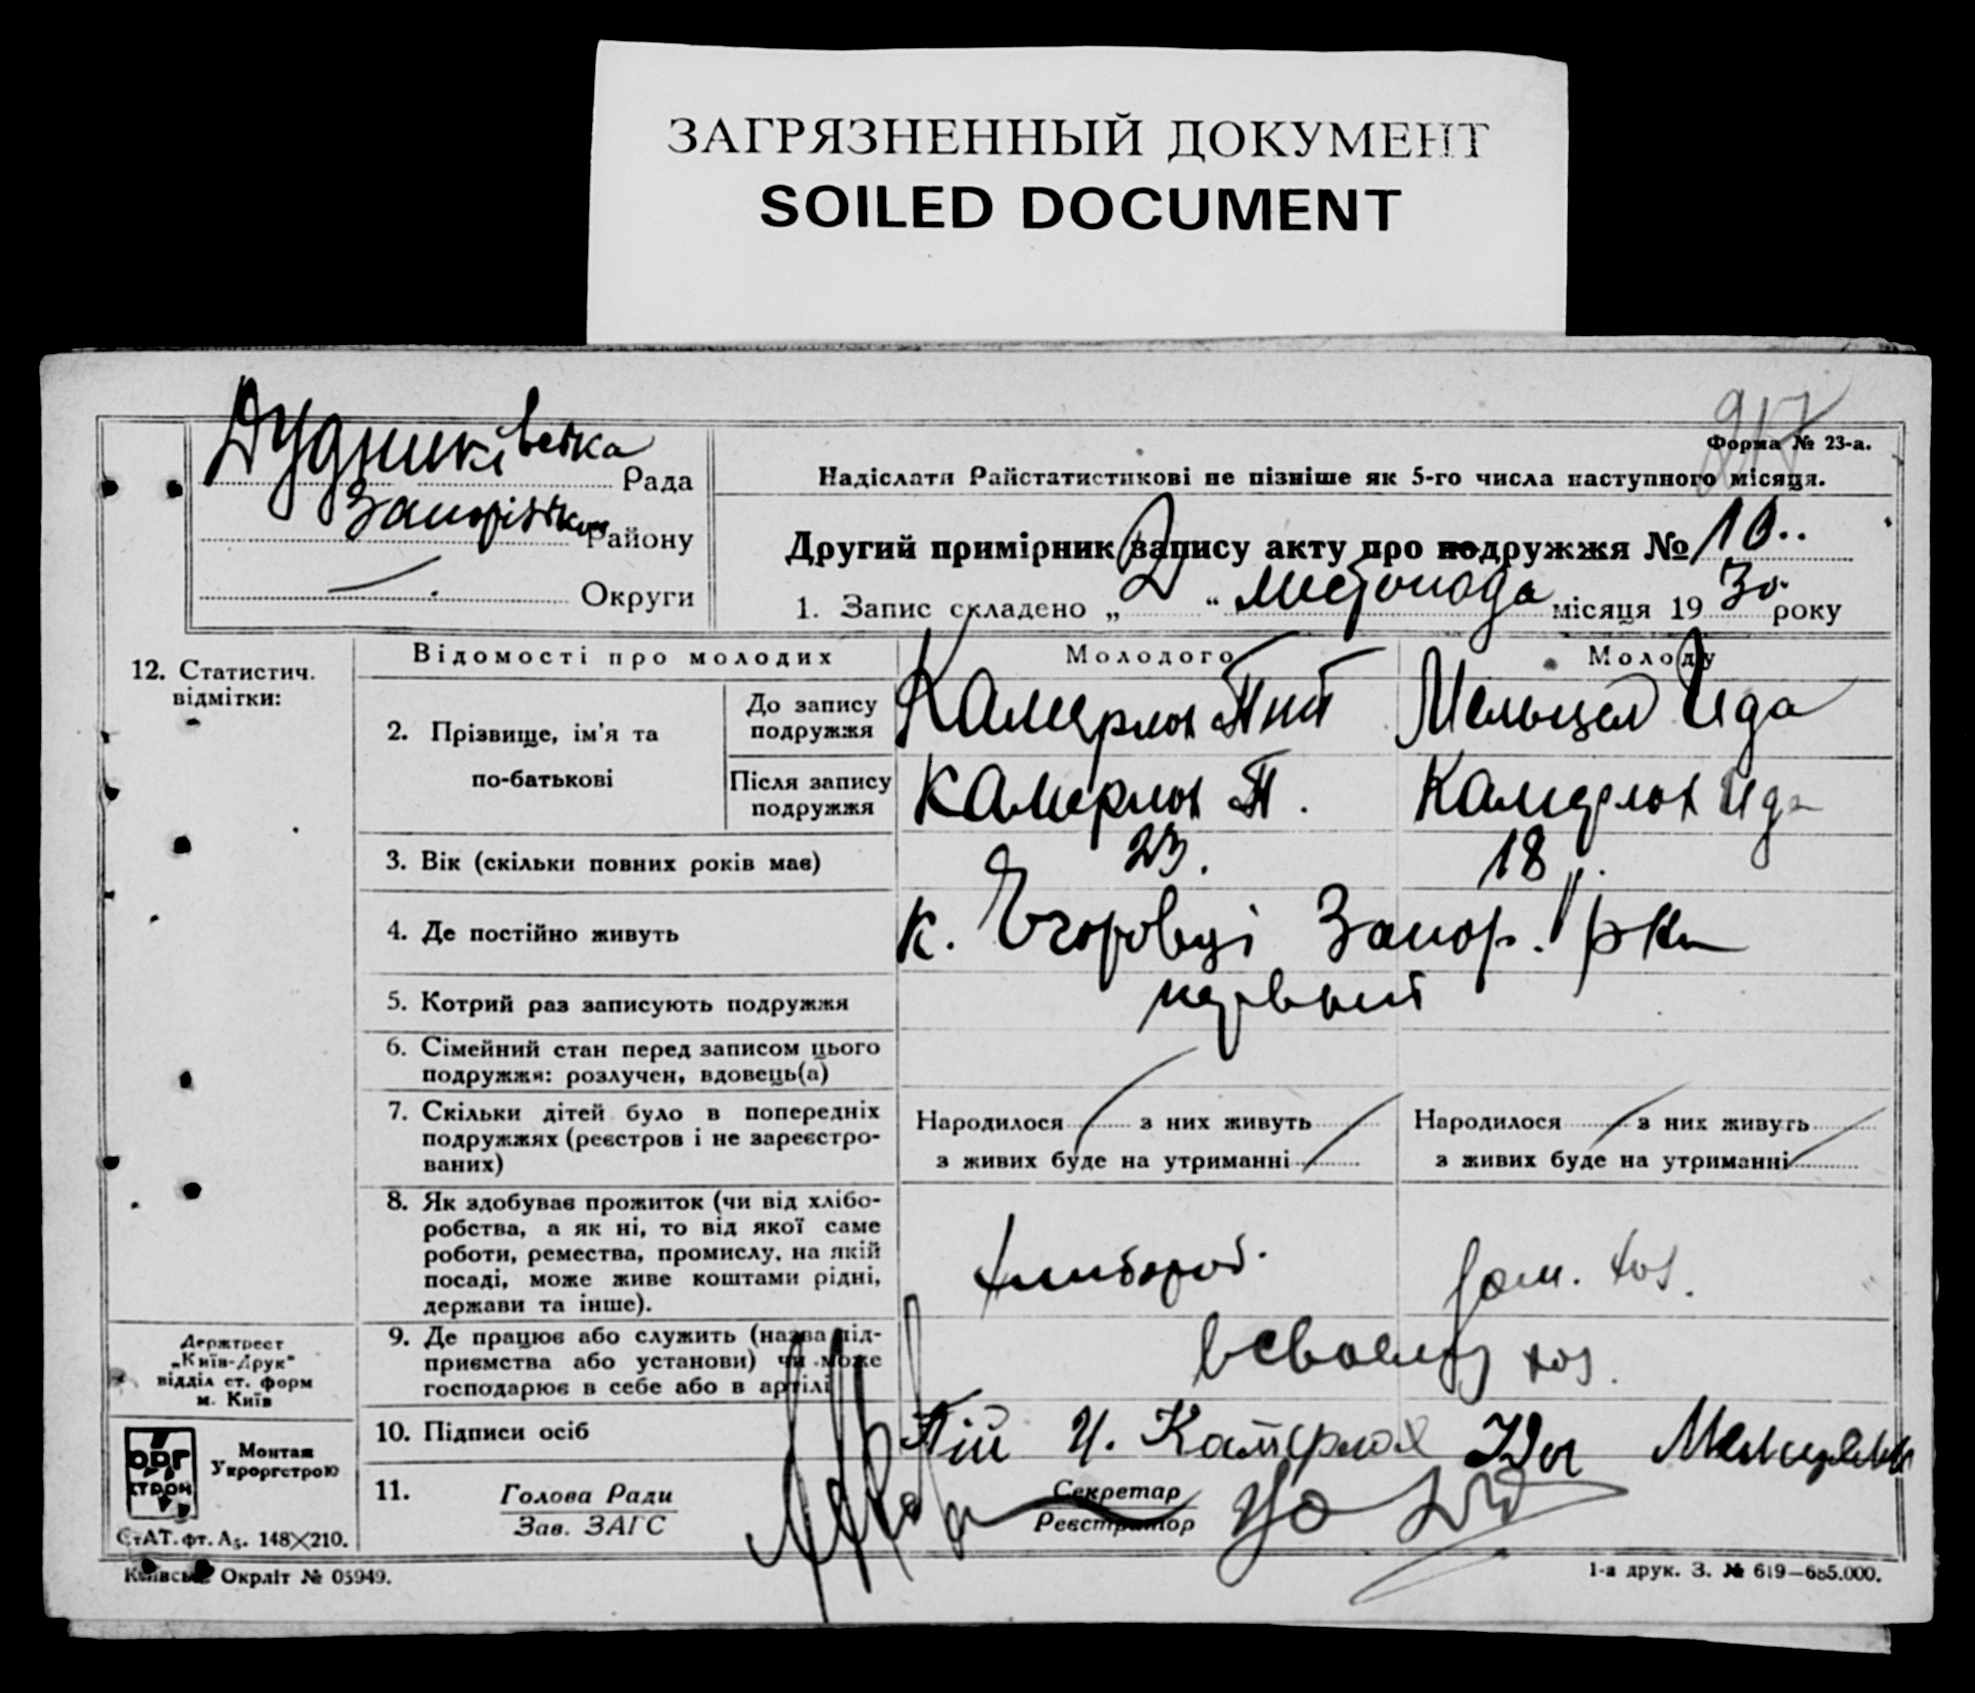 ЗАГРЯЗНЕННЫЙ ДОКУМЕНТ
SOILED DOCUMENT
217
Форма № 23-а.
Дудниківська Рада
Запорізьк Району
Округи
Надіслати Райстатистикові не пізніше як 5-го числа наступного місяця.
Другий примірник запису акту про подружжя № 10
1. Запис складено „ 2 “ листопада місяця 19 30 року
12. Статистич. відмітки:
Відомості про молодих
Молодого
Молоду
2. Прізвище, ім'я та по-батькові
До запису подружжя
Камерлох
Мельцел Ида
Після запису подружжя
Камерлох
Камерлох Ида
3. Вік (скільки повних років має)
23.
18
4. Де постійно живуть
к. Запор. р-ну
5. Котрий раз записують подружжя
первый
6. Сімейний стан перед записом цього
подружжя: розлучен, вдовець(а)
7. Скільки дітей було в попередніх
подружжях (реєстров і не зареєстро-
ваних)
Народилося з них живуть
з живих буде на утриманні
Народилося з них живуть
з живих буде на утриманні
8. Як здобуває прожиток (чи від хлібо-
робства, а як ні, то від якої саме
роботи, ремества, промислу, на якій
посаді, може живе коштами рідні,
держави та інше).
хлибороб.
дом. хоз.
9. Де працює або служить (назва під-
приємства або установи) чи може
господарює в себе або в артілі
в своему хоз.
10. Підписи осіб
11. Голова Ради
Зав. ЗАГС
Секретар
Реєстратор
Держтрест
„Київ-Друк“
відділ ст. форм
м. Київ
ОРГ
СТРОЙ
Монтаж
Укроргстрою
СтАТ. фт. А₅. 148×210.
Київськ. Окрліт № 05949.
1-а друк. З. № 619—685.000.